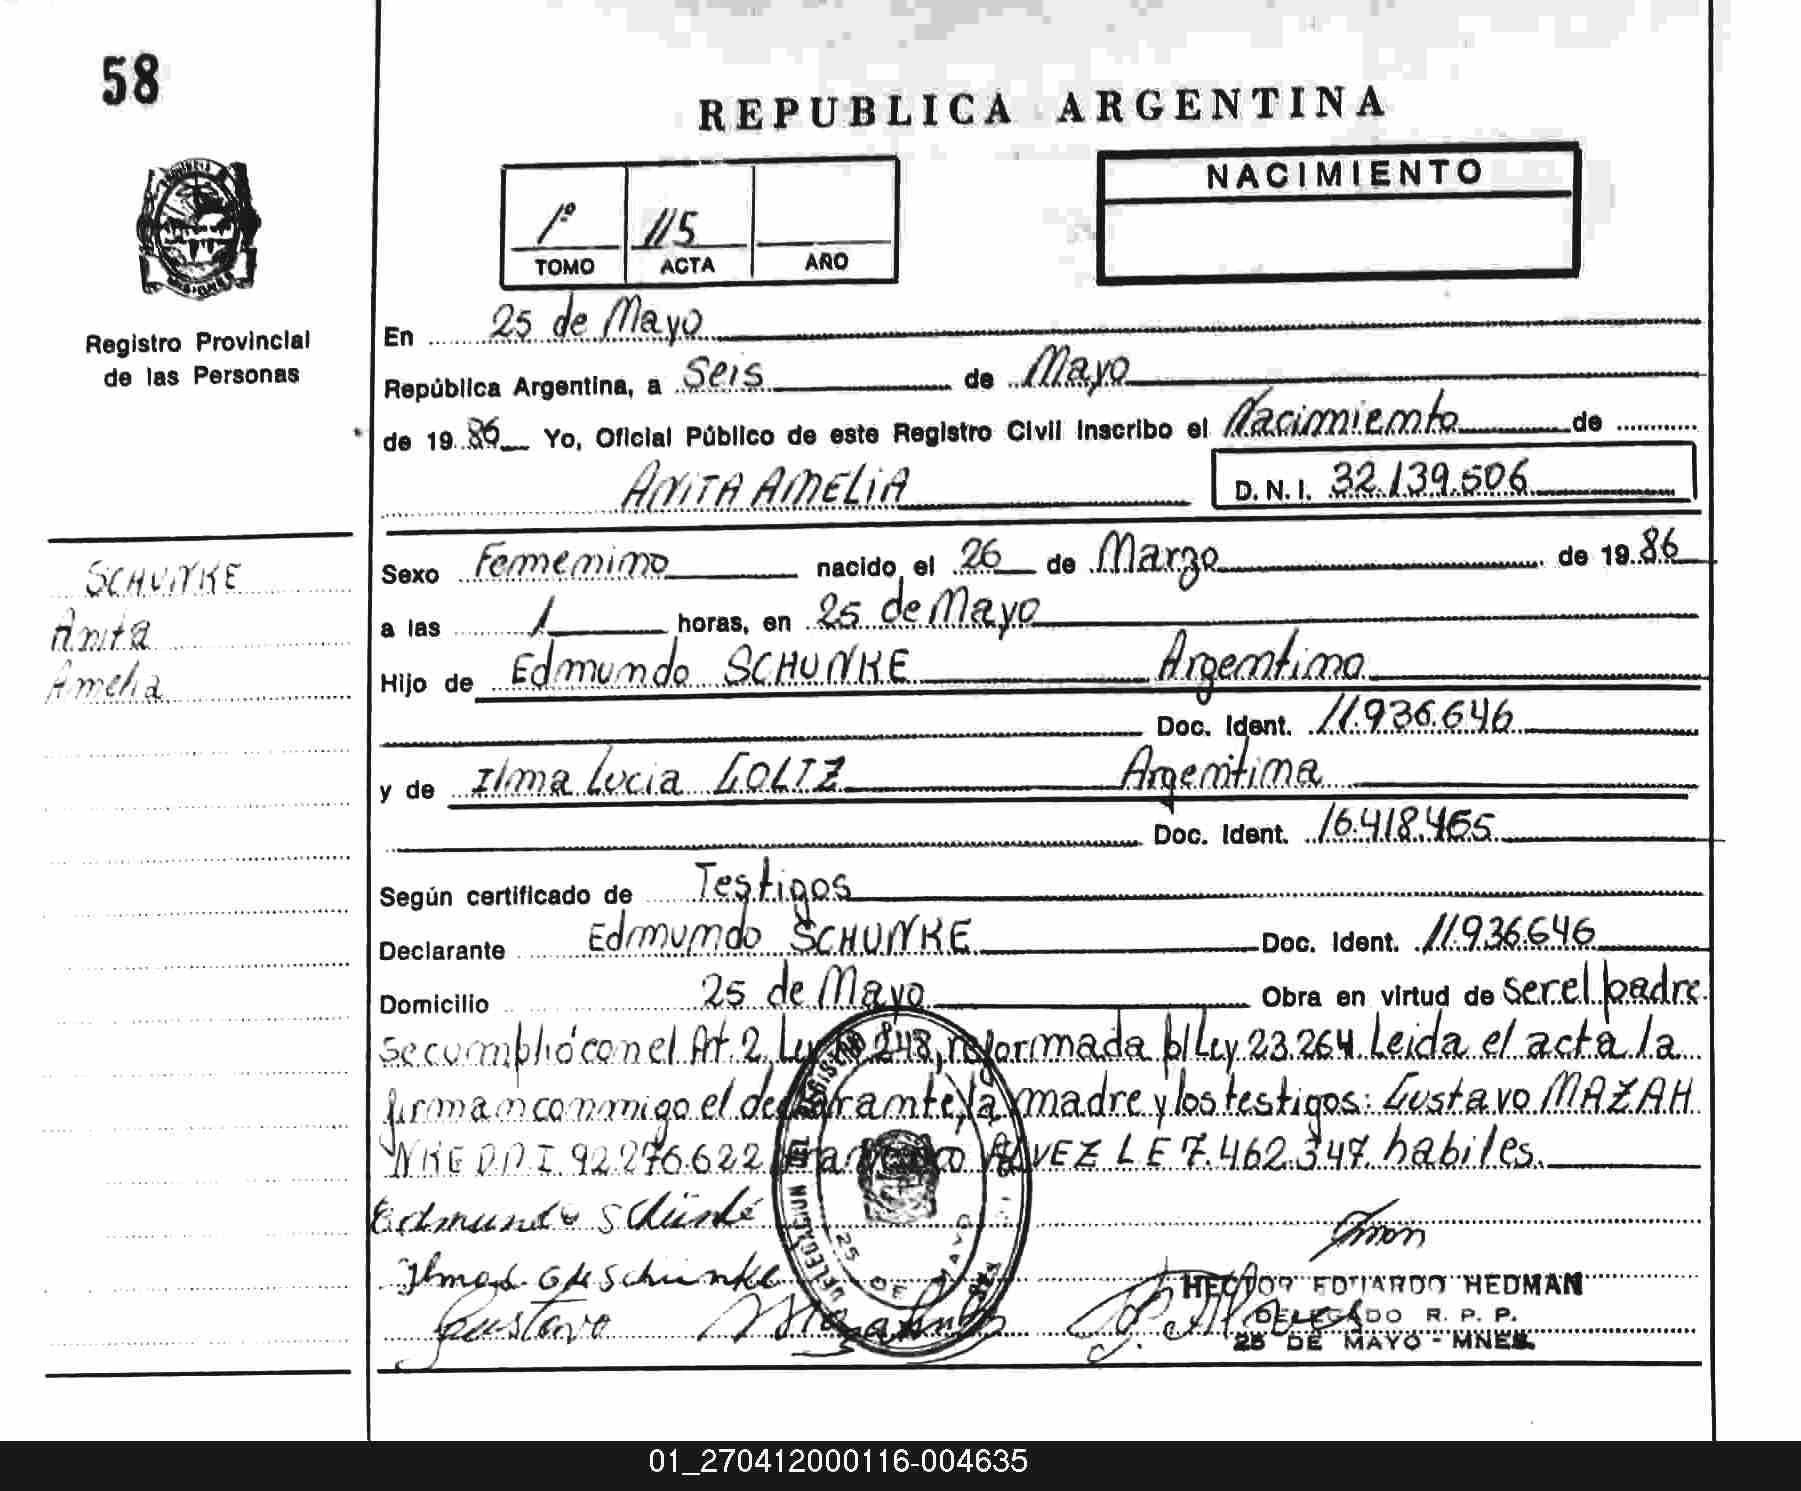 58
REPUBLICA ARGENTINA
NACIMIENTO
1º 115
TOMO ACTA AÑO
Registro Provincial
de las Personas
En 25 de Mayo
República Argentina, a Seis de Mayo
de 1986 Yo, Oficial Público de este Registro Civil inscribo el Nacimiento de
ANITA AMELIA D.N.I. 32.139.506
SCHUNKE
Anita
Amelia
Sexo Femenino nacido el 26 de Marzo de 1986
a las 1 horas, en 25 de Mayo
Hijo de Edmundo SCHUNKE Argentino
Doc. Ident. 11.936.646
y de Ilma Lucia GOLTZ Argentina
Doc. Ident. 16.418.465
Según certificado de Testigos
Declarante Edmundo SCHUNKE Doc. Ident. 11.936.646
Domicilio 25 de Mayo Obra en virtud de ser el padre.
Se cumplió con el Art. 2 Ley 18.248, reformada p/Ley 23.264 Leida el acta la
firman conmigo el declarante, la madre y los testigos: Gustavo MAZAH
NKE D.N.I. 92.276.622 ALVEZ L E 7.462.347. habiles.
Edmundo Schünke
Gustavo
HECTOR EDUARDO HEDMAN
DELEGADO R. P. P.
25 DE MAYO - MNES.
25 DE MAYO
01_270412000116-004635